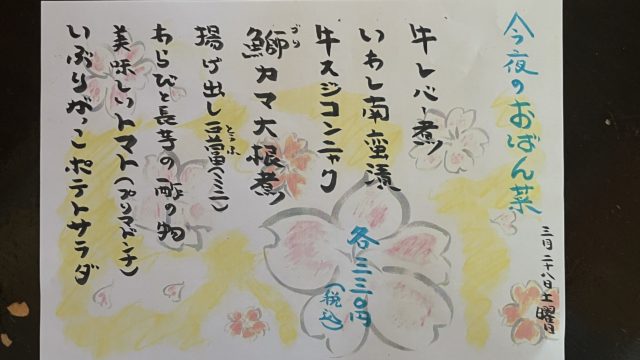 今夜のおばん菜
三月二十八日土曜日
牛レバー煮
いわし南蛮漬
牛スジコンニャク
鰤カマ大根煮
ぶり
揚げ出し豆富(ミニ)
とうふ
わらびと長芋の酢の物
美味しいトマト(カンツォマドンナ)
いぶりがっこポテトサラダ
各三三〇円
(税込)